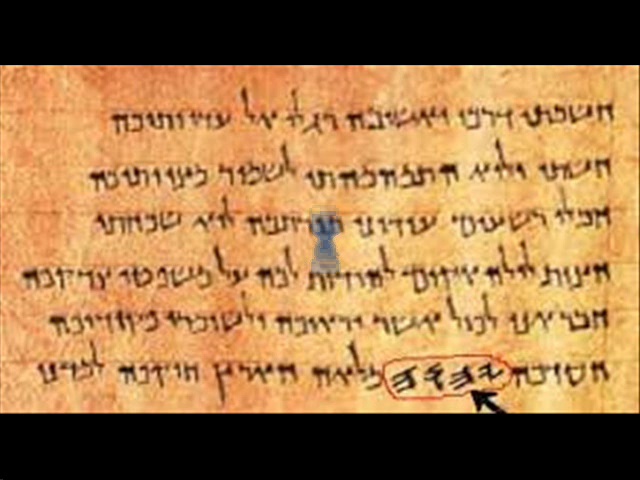 חשבתי דרכי ואשיבה רגלי אל עדוותיכה
חשתי ולוא התמהמהתי לשמור מצוותיכה
חבלי רשעים עודוני תורתכה לוא שכחתי
חצות לילה אקום להודות לכה על משפטי צדקכה
חבר אני לכול אשר יראוכה ולשומרי פקודיכה
חסדכה 𐤉𐤄𐤅𐤄 מלאה הארץ חוקיכה למדני